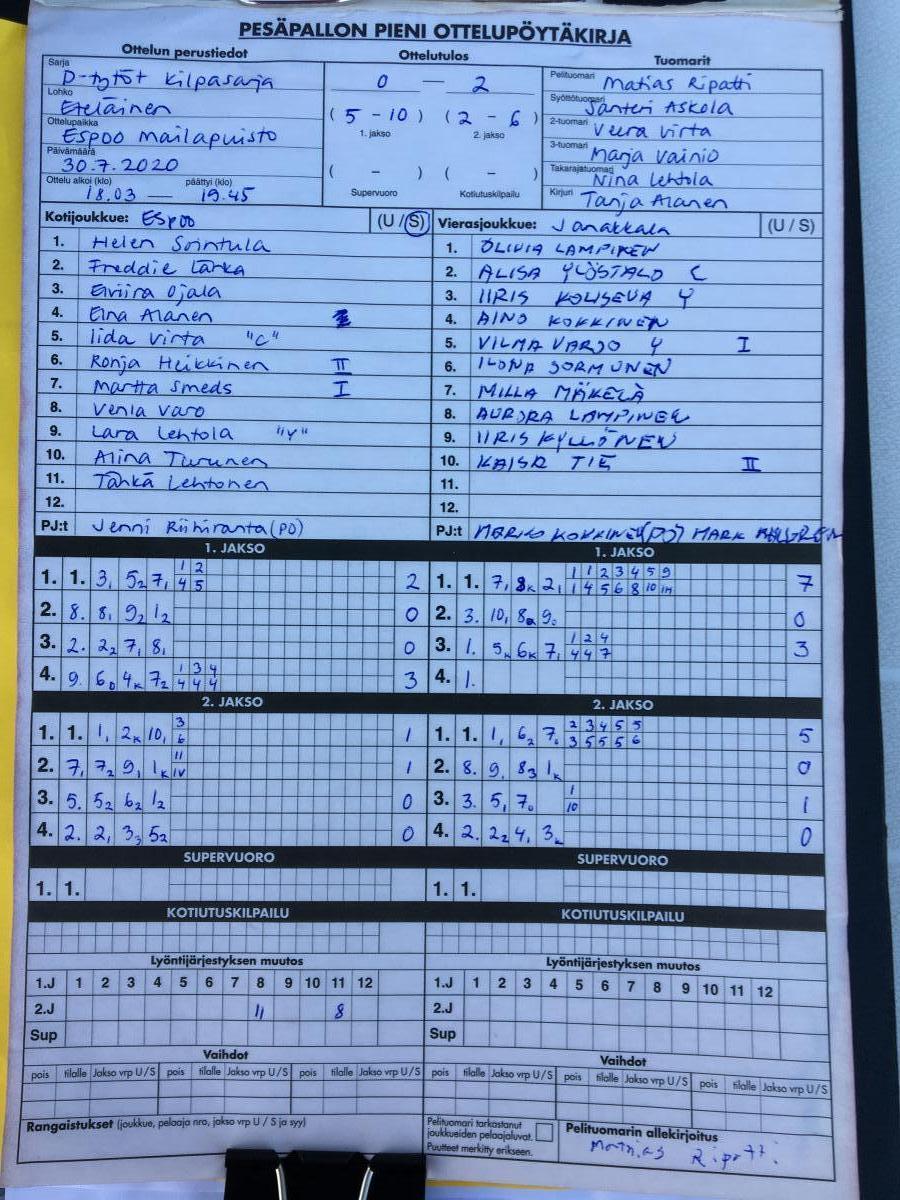 PESÄPALLON PIENI OTTELUPÖYTÄKIRJA
Ottelun perustiedot
Sarja
D-tytöt Kilpasarja
Lohko
Eteläinen
Ottelupaikka
Espoo Mailapuisto
Päivämäärä
30.7.2020
Ottelu alkoi (klo) päättyi (klo)
18.03 — 19.45
Ottelutulos
0 — 2
( 5 - 10 ) ( 2 - 6 )
1. jakso 2. jakso
( - ) ( - )
Supervuoro Kotiutuskilpailu
Tuomarit
Pelituomari Matias Ripatti
Syöttötuomari Santeri Askola
2-tuomari Veera Virta
3-tuomari Marja Vainio
Takarajatuomari Nina Lehtola
Kirjuri Tanja Alanen
Kotijoukkue: Espoo (U / S)
1. Helen Sorintula
2. Freddie Lärka
3. Elviira Ojala
4. Elna Alanen
5. Iida Virta "C"
6. Ronja Heikkinen II
7. Martta Smeds I
8. Venla Varo
9. Lara Lehtola "Y"
10. Alina Turunen
11. Tähkä Lehtonen
12.
PJ:t Jenni Riihiranta (PO)
Vierasjoukkue: Janakkala (U / S)
1. OLIVIA LAMPINEN
2. ALISA YLÖSTALO C
3. IIRIS KOLISEVA Y
4. AINO KOKKINEN
5. VILMA VARJO Y I
6. ILONA SORMUNEN
7. MILLA MÄKELÄ
8. AURORA LAMPINEN
9. IIRIS KYLLÖNEN
10. KAISA TIE II
11.
12.
PJ:t MARKO KOKKINEN (PO) MARK
1. JAKSO
1. 1. 3, 5₂ 7, 2
1 2
4 5
2. 8. 8, 9₂ 1₂ 0
3. 2. 2₂ 7, 8, 0
4. 9. 6₀ 4ₖ 7₂ 3
1 3 4
4 4 4
1. JAKSO
1. 1. 7, 8ₖ 2, 7
1 1 2 3 4 5 9
1 4 5 6 8 10
2. 3. 10, 8 9. 0
3. 1. 5ₖ 6ₖ 7, 3
1 2 4
4 4 7
4. 1.
2. JAKSO
1. 1. 1, 2ₖ 10, 1
3
6
2. 7, 7₂ 9, 1ₖ 1
II
IV
3. 5. 5₂ 6₂ 1₂ 0
4. 2. 2, 3₃ 5₂ 0
2. JAKSO
1. 1. 1, 6₂ 7. 5
2 3 4 5 5
3 5 5 5 6
2. 8. 9. 8₃ 1ₖ 0
3. 3. 5, 7. 1
1
10
4. 2. 2₂ 4, 3ₖ 0
SUPERVUORO
1. 1.
SUPERVUORO
1. 1.
KOTIUTUSKILPAILU
KOTIUTUSKILPAILU
Lyöntijärjestyksen muutos
1.J 1 2 3 4 5 6 7 8 9 10 11 12
2.J 11 8
Sup
Lyöntijärjestyksen muutos
1.J 1 2 3 4 5 6 7 8 9 10 11 12
2.J
Sup
Vaihdot
pois tilalle Jakso vrp U / S pois tilalle Jakso vrp U / S pois tilalle Jakso vrp U / S
Vaihdot
pois tilalle Jakso vrp U / S pois tilalle Jakso vrp U / S pois tilalle Jakso vrp U / S
Rangaistukset (joukkue, pelaaja nro, jakso vrp U / S ja syy)
Pelituomari tarkastanut
joukkueiden pelaajaluvat.
Puutteet merkitty erikseen.
Pelituomarin allekirjoitus
Matias Ripatti